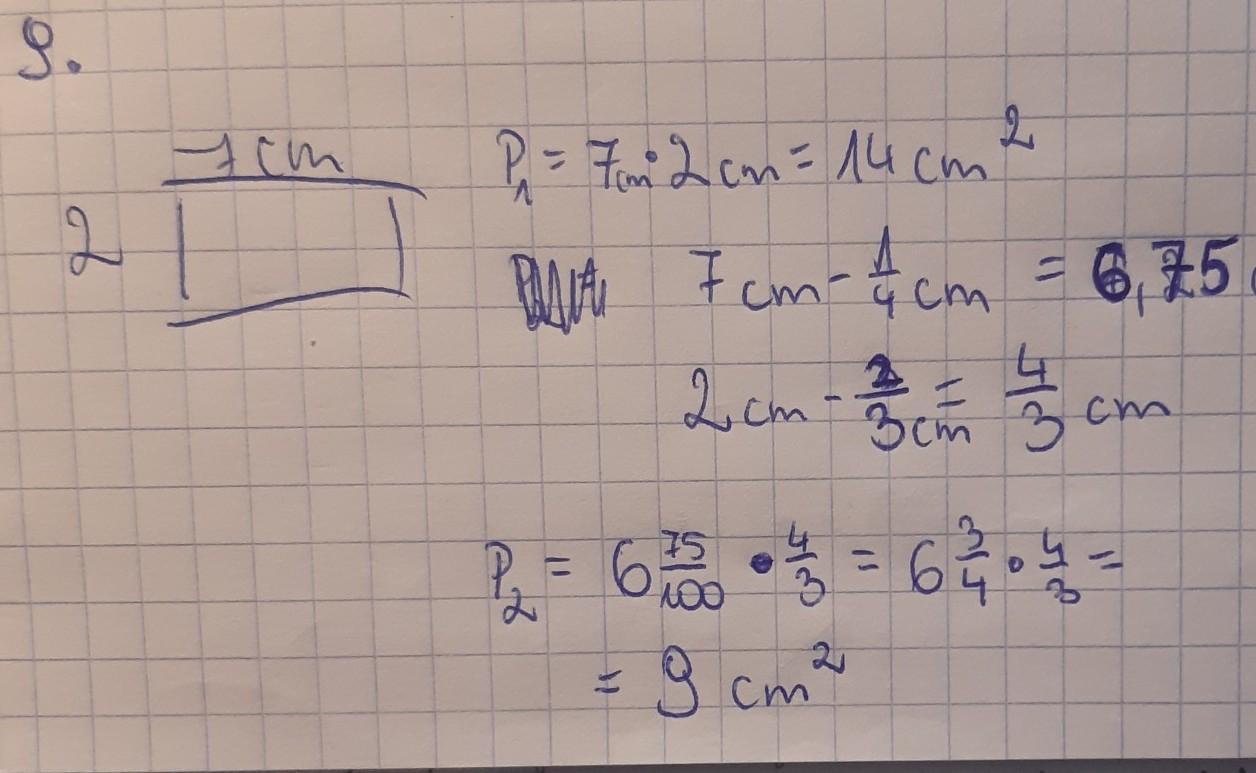 9.
7 cm
2
P₁ = 7cm · 2 cm = 14 cm²
7 cm - 1/4 cm = 6,75
2 cm - 2/3 cm = 4/3 cm
P₂ = 6 75/100 · 4/3 = 6 3/4 · 4/3 =
= 9 cm²